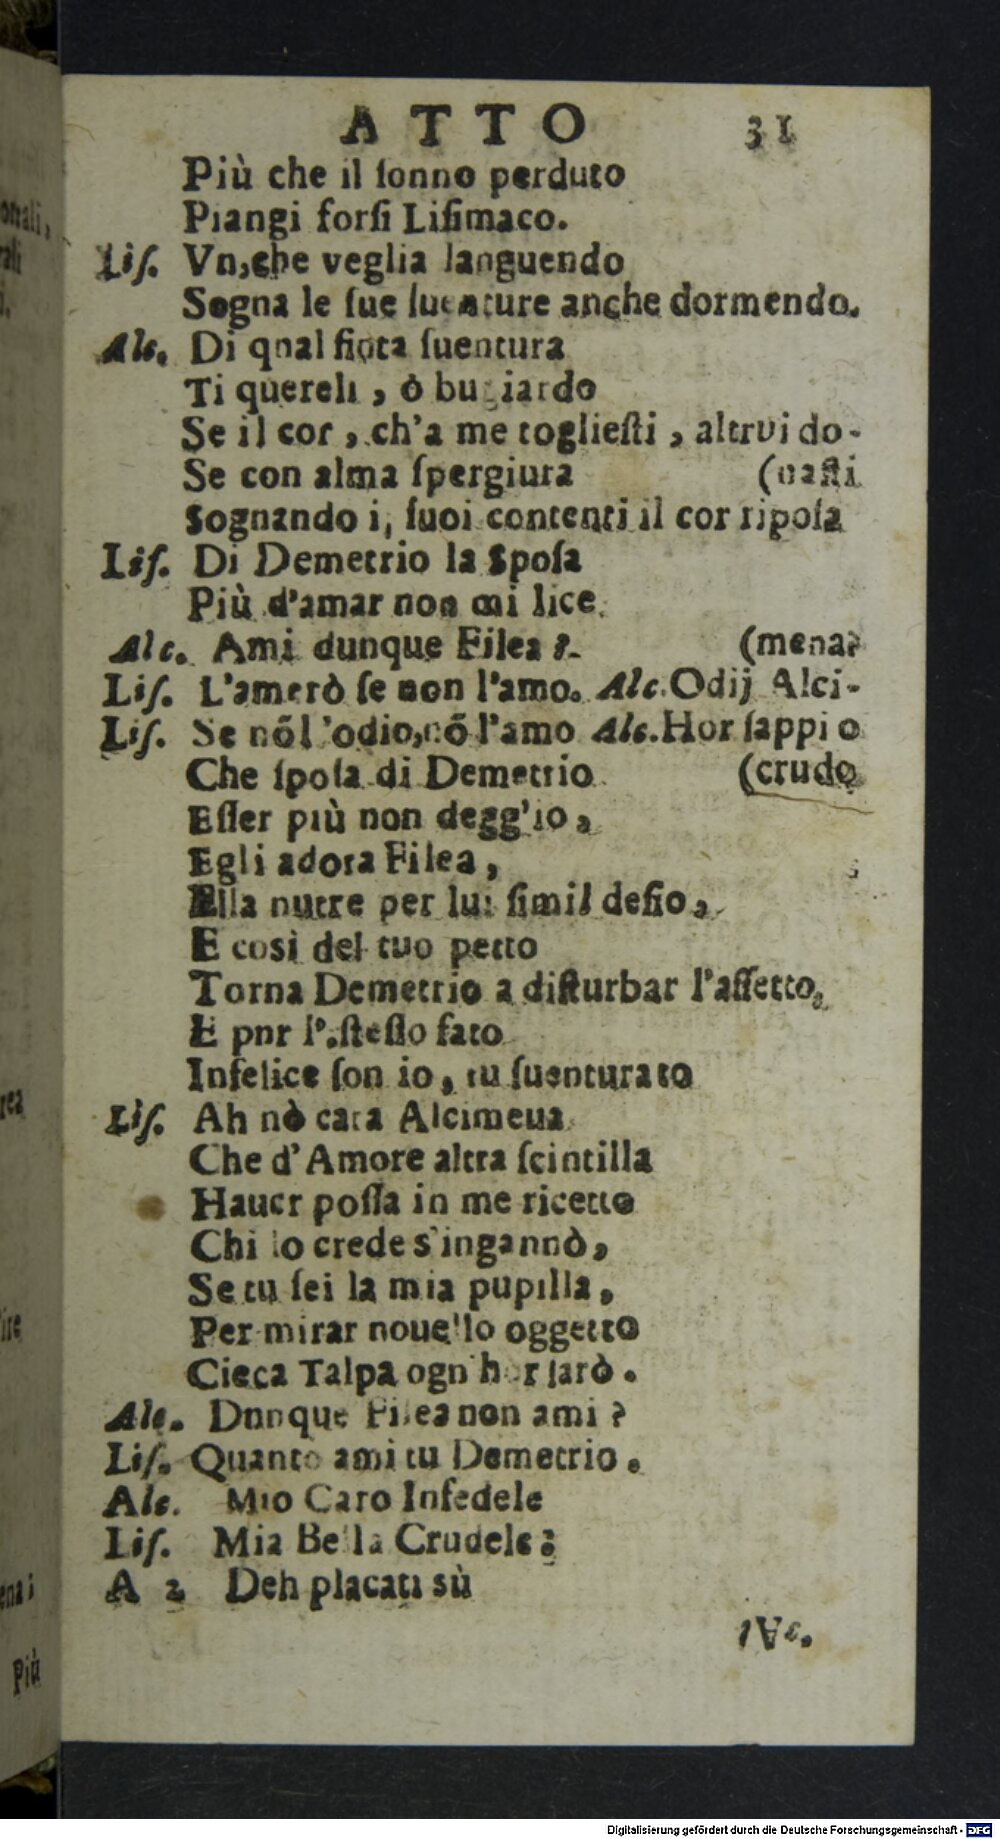 ATTO 31
Più che il ſonno perduto
Piangi forſi Liſimaco.
Liſ. Vn, che veglia languendo
Sogna le ſue ſuenture anche dormendo.
Alc. Di qnal finta ſuentura
Ti quereli, ò bugiardo
Se il cor, ch'a me toglieſti, altrui do-
Se con alma ſpergiura (naſti
Sognando i, ſuoi contenti il cor ripoſa
Liſ. Di Demetrio la Spoſa
Più d'amar non mi lice.
Alc. Ami dunque Filea? (mena?
Liſ. L'amerò ſe non l'amo. Alc. Odij Alci-
Liſ. Se nõ l'odio, nõ l'amo Alc. Hor ſappi o
Che ſpoſa di Demetrio (crudo
Eſſer più non degg'io,
Egli adora Filea,
Ella nutre per lui ſimil deſio,
E così del tuo petto
Torna Demetrio a diſturbar l'affetto,
E pnr l'iſteſſo fato
Infelice ſon io, tu ſuenturato
Liſ. Ah nò cara Alcimeua
Che d'Amore altra ſcintilla
Hauer poſſa in me ricetto
Chi lo crede s'ingannò,
Se tu ſei la mia pupilla,
Per mirar nouello oggetto
Cieca Talpa ogn'hor ſarò.
Alc. Dnnque Filea non ami?
Liſ. Quanto ami tu Demetrio.
Alc. Mio Caro Infedele
Liſ. Mia Bella Crudele;
A 2 Deh placati sù
Digitalisierung gefördert durch die Deutsche Forschungsgemeinschaft - DFG